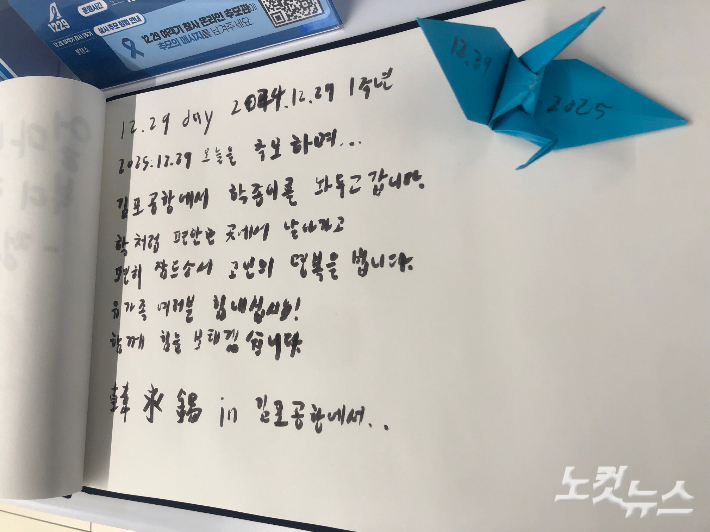 1229
12.29 여객기 참사 온라인 추모관
추모의 메시지를 남겨주세요.
12.29
2025
12.29 day 2024.12.29 1주년
2025.12.29 오늘을 추모하며...
김포공항에서 학종이를 놔두고 갑니다.
학처럼 편안한 곳에서 날아가고
편히 잠드소서 고인의 명복을 빕니다.
유가족 여러분 힘내십시요!
함께 힘을 보태겠습니다
韓 永 錫 in 김포공항에서..
노컷뉴스